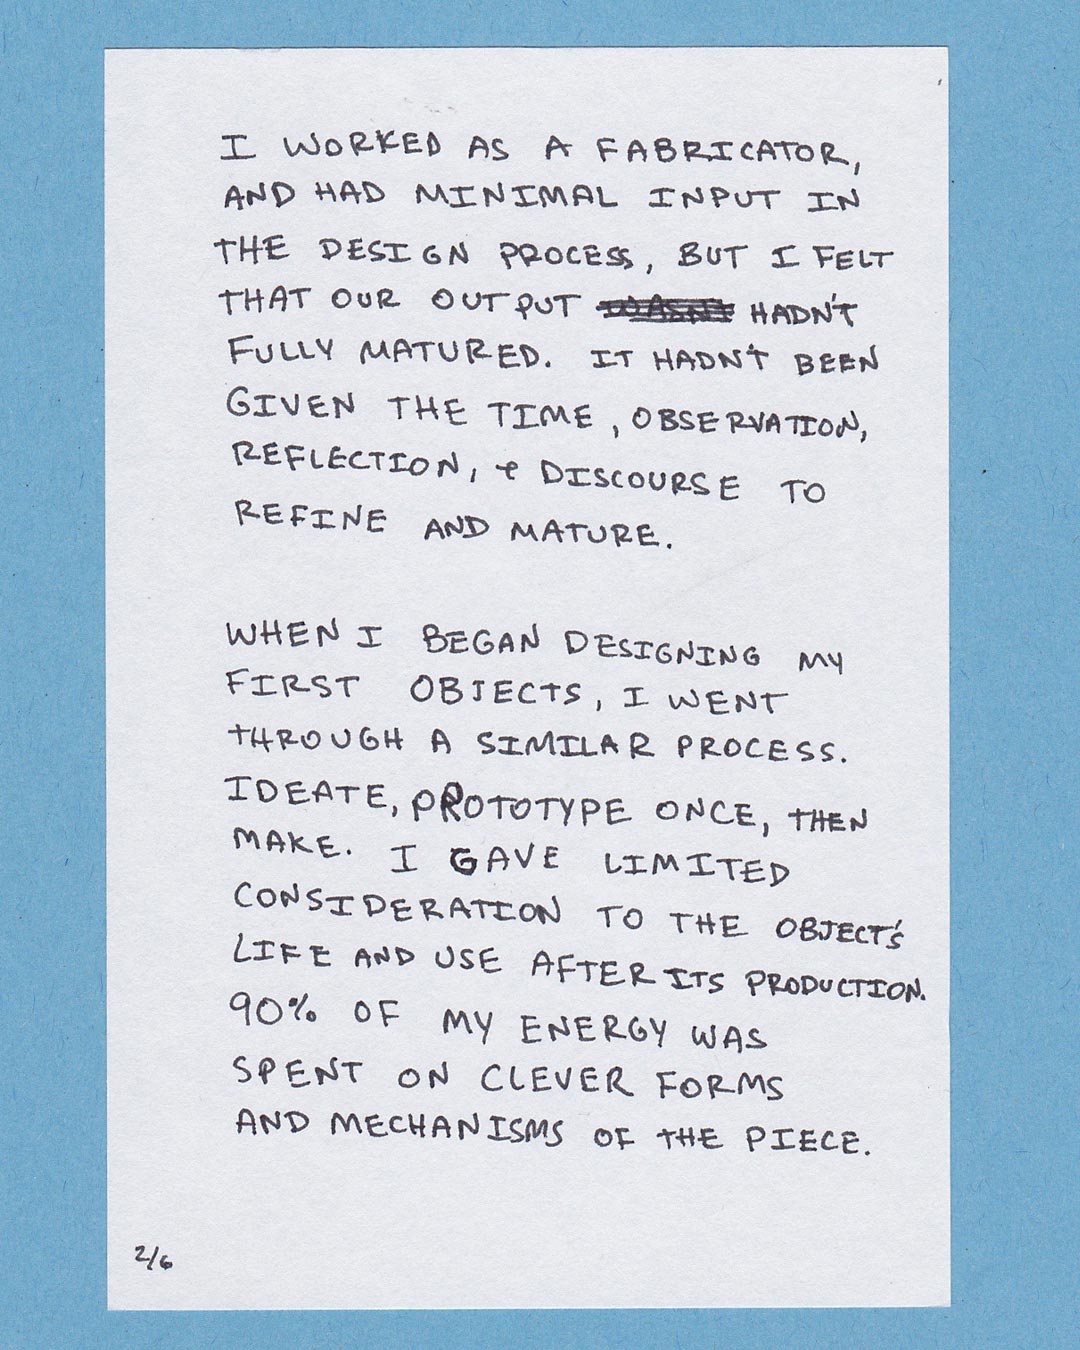 I WORKED AS A FABRICATOR,
AND HAD MINIMAL INPUT IN
THE DESIGN PROCESS, BUT I FELT
THAT OUR OUTPUT WASN'T HADN'T
FULLY MATURED. IT HADN'T BEEN
GIVEN THE TIME, OBSERVATION,
REFLECTION, & DISCOURSE TO
REFINE AND MATURE.
WHEN I BEGAN DESIGNING MY
FIRST OBJECTS, I WENT
THROUGH A SIMILAR PROCESS.
IDEATE, PROTOTYPE ONCE, THEN
MAKE. I GAVE LIMITED
CONSIDERATION TO THE OBJECT'S
LIFE AND USE AFTER ITS PRODUCTION.
90% OF MY ENERGY WAS
SPENT ON CLEVER FORMS
AND MECHANISMS OF THE PIECE.
2/6